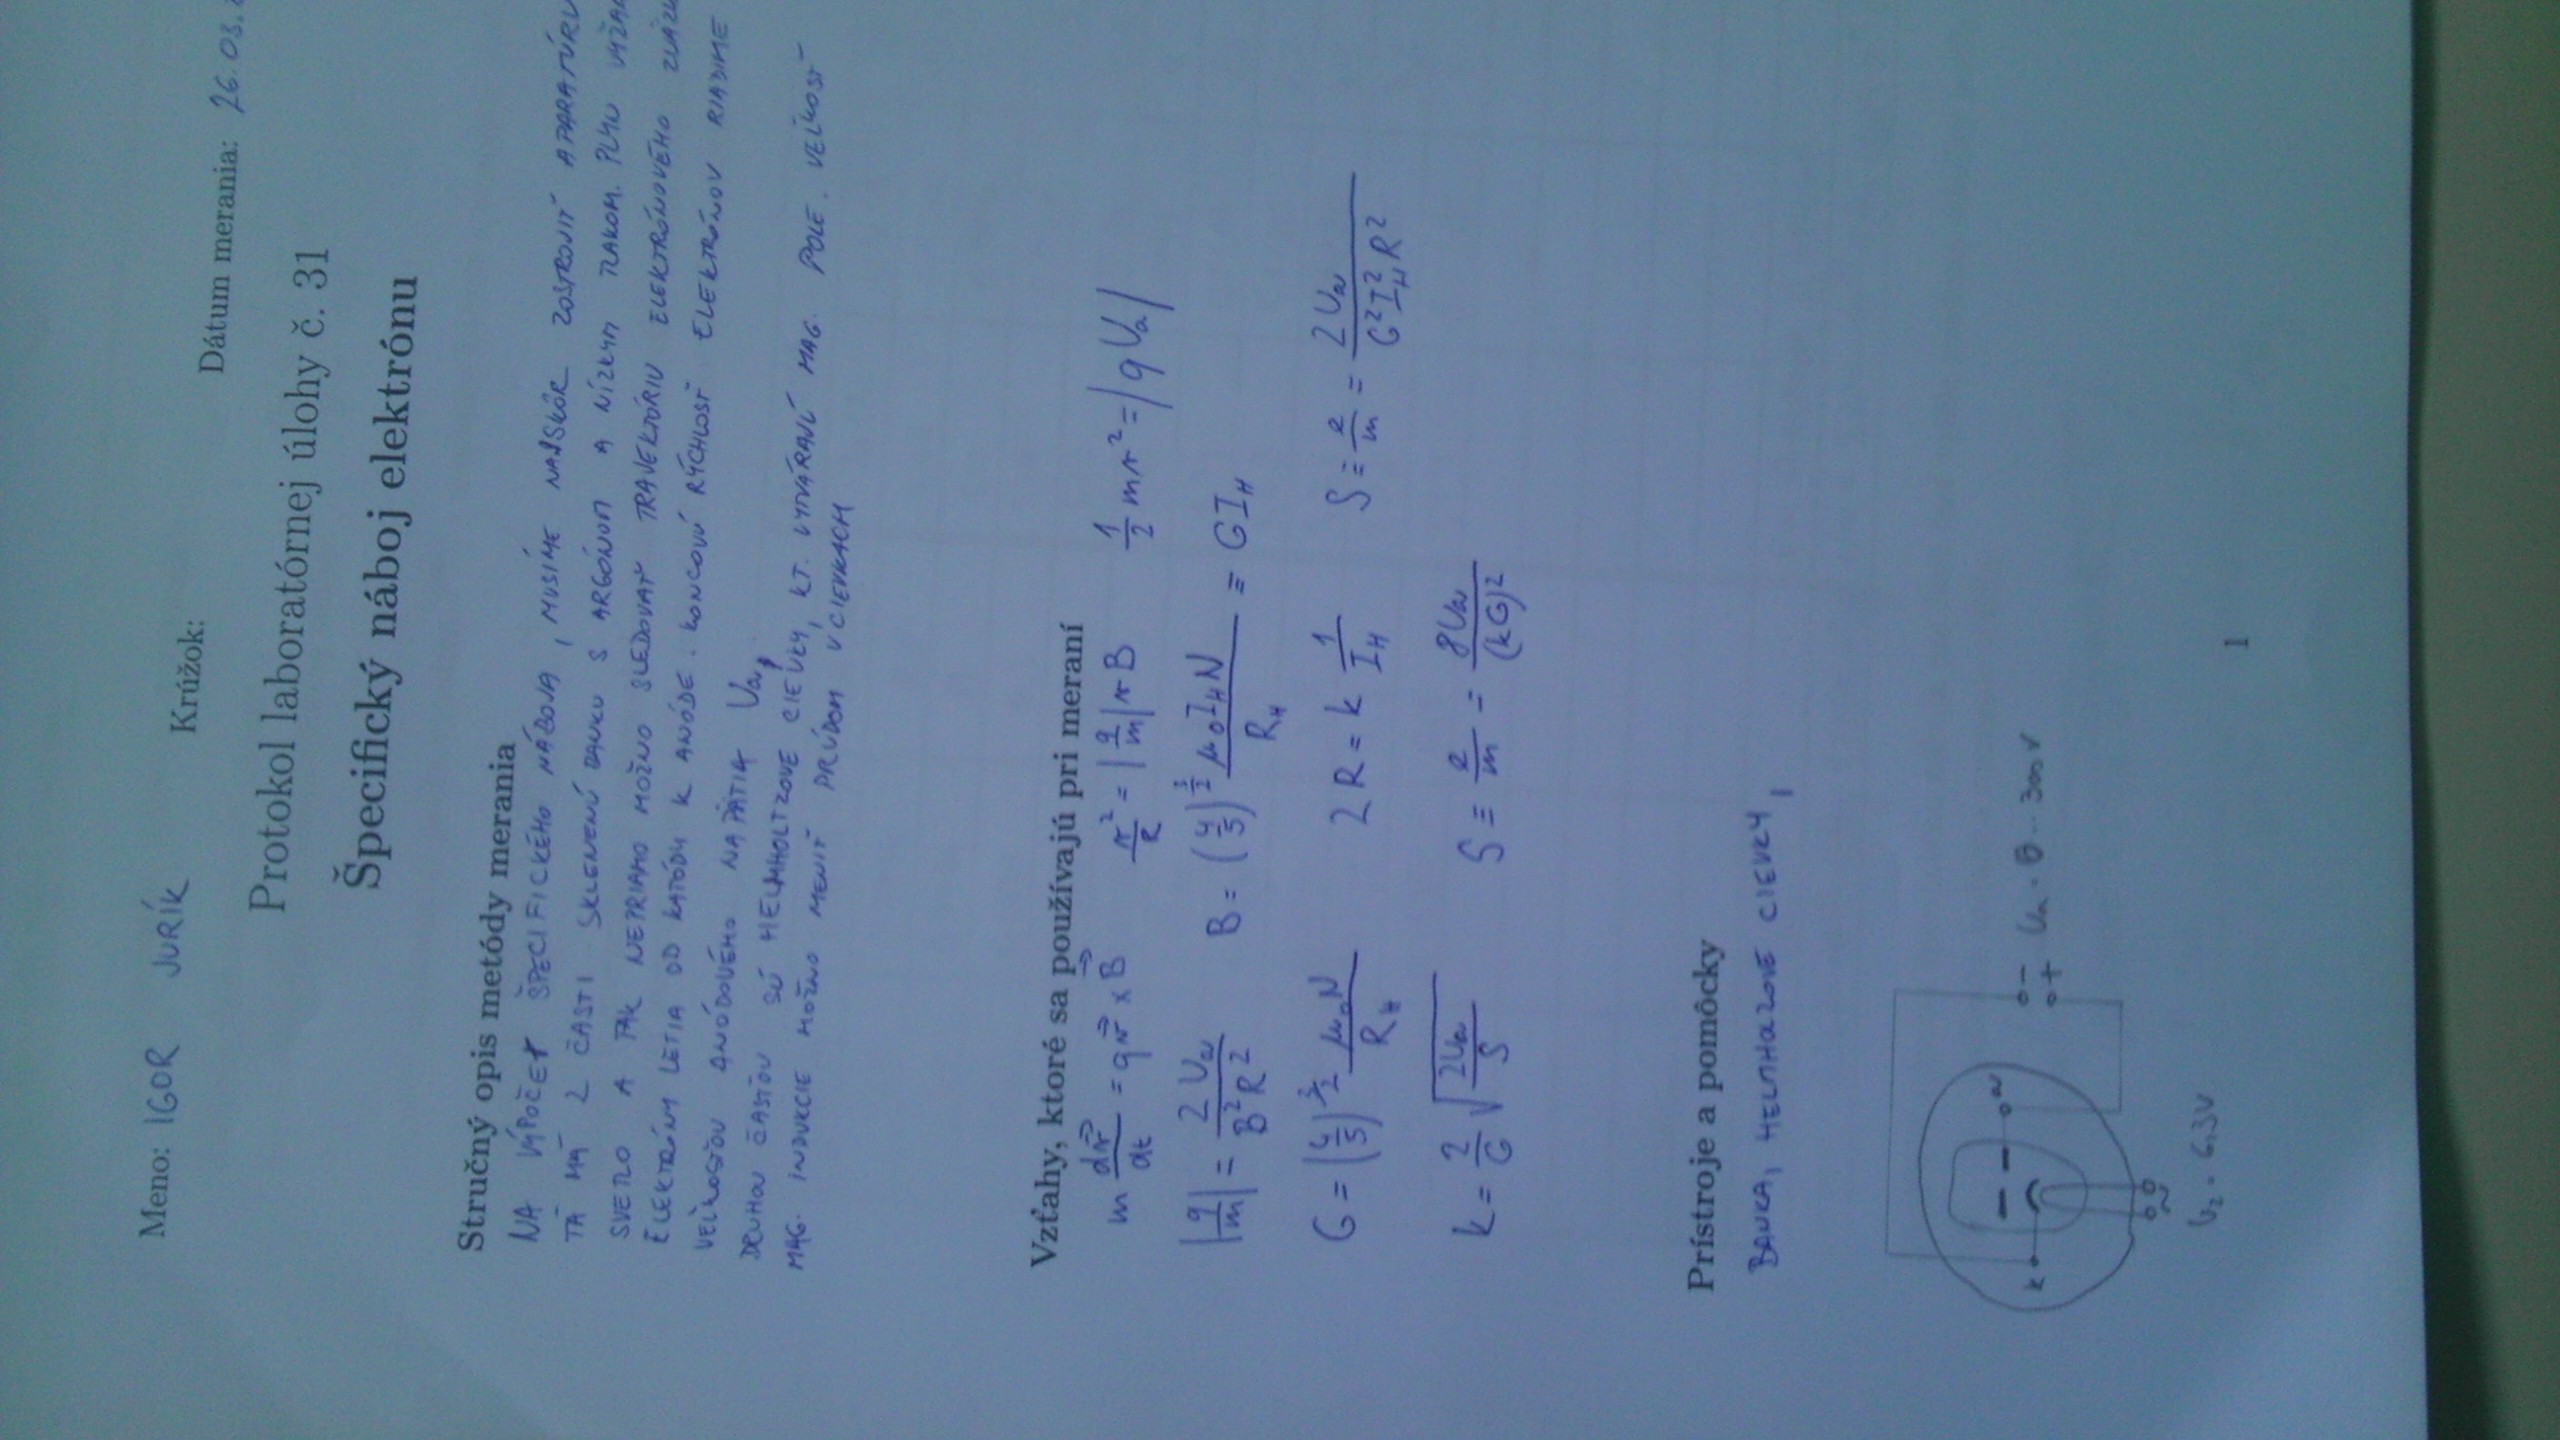 Meno: IGOR JURÍK Krúžok: Dátum merania: 26.03.
Protokol laboratórnej úlohy č. 31
Špecifický náboj elektrónu
Stručný opis metódy merania
NA VÝPOČET ŠPECIFICKÉHO NÁBOJA, MUSÍME NAJSKÔR ZOSTROJIŤ APARATÚRU
TÁ MÁ 2 ČASTI SKLENENÚ BANKU S ARGÓNOM A NÍZKYM TLAKOM. PLYN
SVETLO A TAK NEPRIAMO MOŽNO SLEDOVAŤ TRAJEKTÓRIU ELEKTRÓNOVÉHO
ELEKTRÓNY LETIA OD KATÓDY K ANÓDE. KONCOVÚ RÝCHLOSŤ ELEKTRÓNOV RIADIME
VEĽKOSŤOU ANÓDOVÉHO NAPÄTIA Ua,
DRUHOU ČASŤOU SÚ HELMHOLTZOVE CIEVKY, KT. VYTVÁRAJÚ MAG. POLE. VEĽKOSŤ
MAG. INDUKCIE MOŽNO MENIŤ PRÚDOM V CIEVKACH
Vzťahy, ktoré sa používajú pri meraní
m dv⃗/dt = qv⃗ × B⃗ v²/R = |q/m| v B 1/2 mv² = |q Ua|
|q/m| = 2Ua/(B²R²) B = (4/5)^(3/2) μ₀I_H N/R_H ≡ G I_H
G = (4/5)^(3/2) μ₀N/R_H 2R = k 1/I_H S = e/m = 2Ua/(G²I_H²R²)
k = 2/G √(2Ua/S) S ≡ e/m = 8Ua/(kG)²
Prístroje a pomôcky
BANKA, HELMHOLZOVE CIEVKY,
k a
- + Ua = 0 .. 300 V
~
U₂ = 6,3V
1